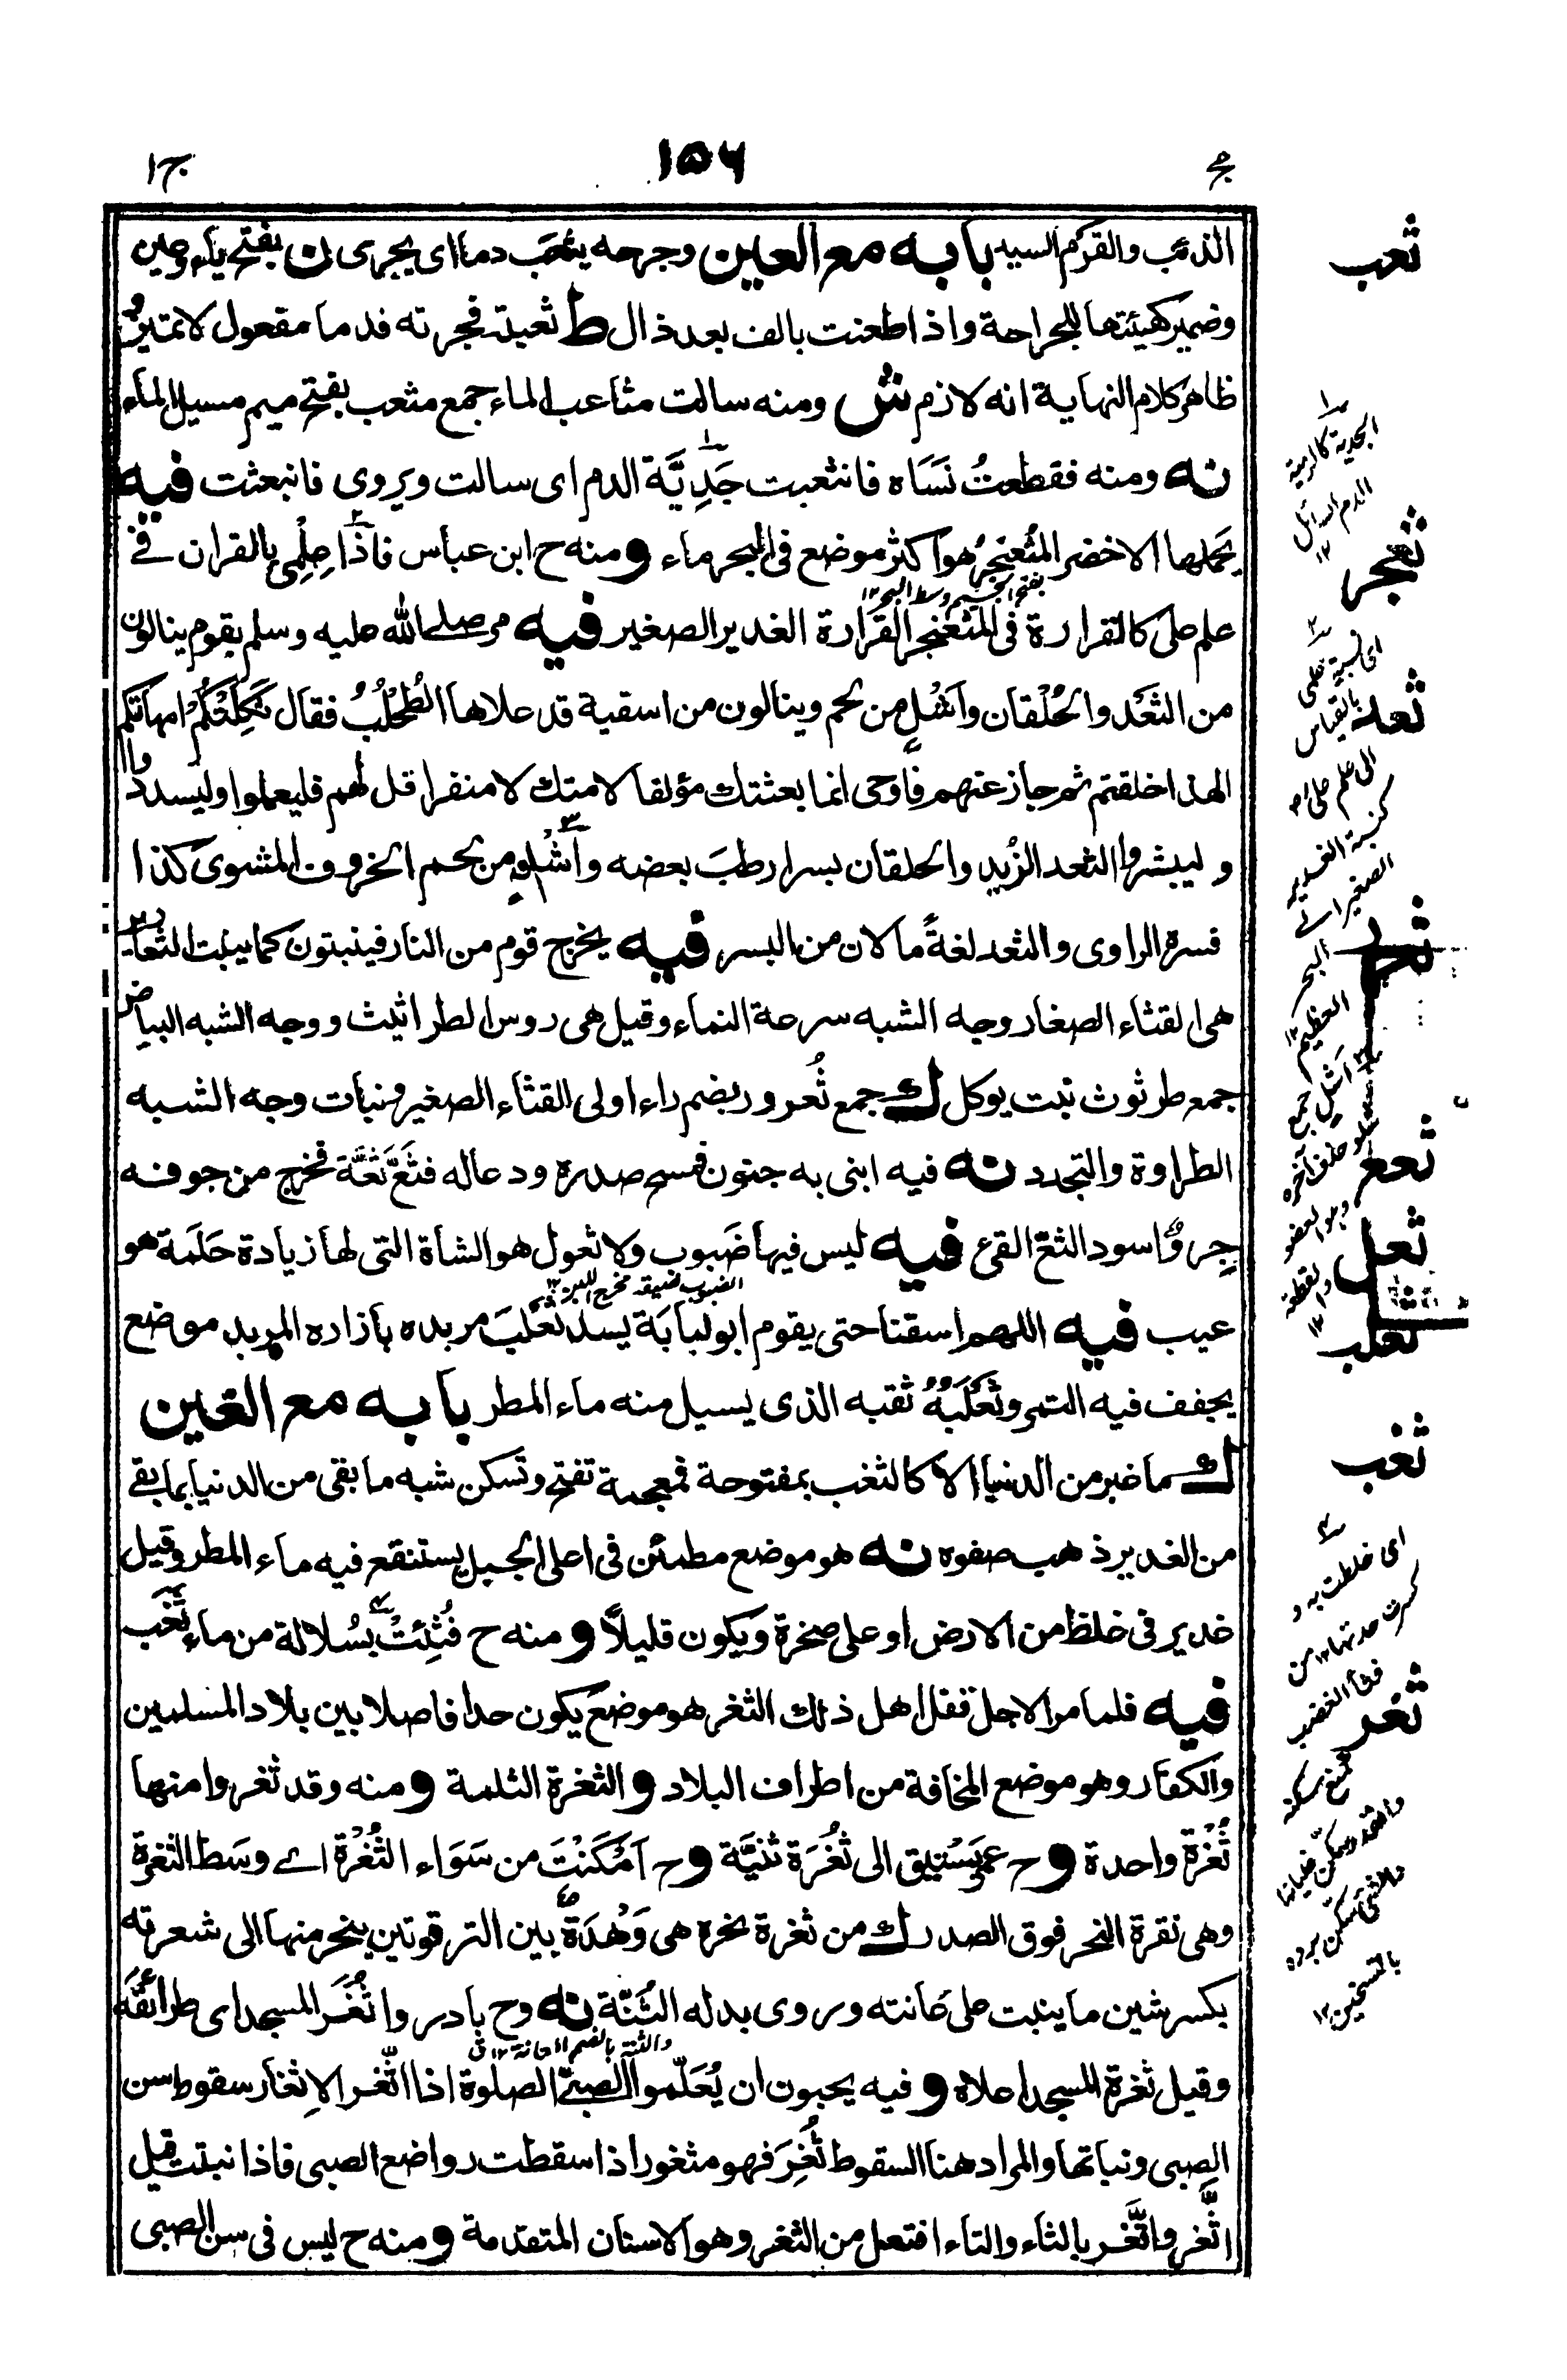 ج١
١٥٦
ج
الذئب والقرم السيد بابه مع العين وجرحه يثعب دما اى يجرى ن بفتح ياء وعين
وضمير كهيئتها للجراحة واذا طعنت بالف بعد ذال ط ثعبته فجرته فدما مفعول لا تمييز و
ظاهر كلام النهاية انه لازم ش ومنه سالت مثاعب الماء جمع مثعب بفتح ميم مسيل الماء
نه ومنه فقطعتُ نَسَاه فانثعبت جَدِيَّة الدم اى سالت ويروى فانبعثت فيه
يحملها الاخضر المثعنجرُ هو اكثر موضع فى البحر ماء و منه ح ابن عباس فاذا عِلْمِى بالقران فے
علم على كالقرارة فى المثعنجر القرارة الغدير الصغير فيه مر صلى الله عليه وسلم بقوم ينالون
بفتح الجيم وسط البحر ١٢
من الثَعْد والحُلْقان واَشْلٍ من لحم وينالون من اسقية قد علاها الطُحْلُبُ فقال ثَكِلَتْكُمْ امهاتكم
الهذا خلقتم ثم جاز عنهم فاوحى انما بعثتك مؤلفا لامتك لا منفرا قل لهم فليعملوا وليسددوا
وليبشروا الثعد الزُبد والحلقان بسر ارطبَ بعضه واَشْلٍ من لحم الخروف المشوى كذا
فسره الراوى والثعد لغةً ما لان من البسر فيه يخرج قوم من النار فينبتون كما ينبت الثعارير
هى القثاء الصغار وجه الشبه سرعة النماء وقيل هى روس الطراثيث ووجه الشبه البياض
جمع طرثوث نبت يوكل ك جمع ثُعرور بضم راء اولى القثاء الصغير ونبات وجه الشبه
الطراوة والتجدد نه فيه ابنى به جنون فمسح صدره ودعا له فثَعَّ ثَعَّة فخرج من جوفه
جِروٌ اسود الثعّ القئ فيه ليس فيها ضَبوب ولا ثعول هو الشاة التى لها زيادة حَلَمة هو
الضبوب ضيقة مخرج اللبن ١٢
عيب فيه اللهم اسقنا حتى يقوم ابو لبابة يسد ثعلبَ مربده بازاره المربد موضع
يجفف فيه التمر وثعْلَبُهُ ثقبه الذى يسيل منه ماء المطر بابه مع الغين
ك ما غبر من الدنيا الا كالثغب بمفتوحة فمعجمة تفتح وتسكن شبه ما بقى من الدنيا بما بقے
من الغدير ذهب صفوه نه هو موضع مطمئن فى اعلى الجبل يستنقع فيه ماء المطر وقيل
غدير فى غلظ من الارض او على صخرة ويكون قليلاً و منه ح فُثِئَتْ بسُلالة من ماء ثَغْب
فيه فلما مر الاجل قفل اهل ذلك الثغر هو موضع يكون حدا فاصلا بين بلاد المسلمين
والكفار وهو موضع المخافة من اطراف البلاد و الثغرة الثلمة و منه وقد ثغروا منها
ثُغْرَة واحدة و ح عمر يَسْتبق الى ثُغْرَة ثنيَّة و ح امكنْتَ من سَوَاء الثُغْرَة اے وسَط الثغرة
وهى نقرة النحر فوق الصدر ك من ثغرة نحره هى وَهْدَة بين الترقوتين ينحر منها الى شعرته
بكسر شين ما ينبت على عانته وروى بدله الثُنَّة نه و ح بادروا ثُغَر المسجد اى طرائقه
والثنة بالضم العانة ١٢ ق
وقيل ثغرة المسجد اعلاه و فيه يحبون ان يُعَلّموا الصبىّ الصلوة اذا اثّغر الاِثغار سقوط سن
الصبى ونباتها والمراد هنا السقوط ثُغِرَ فهو مثغور اذا سقطت رواضع الصبى فاذا نبتت قيل
اثَّغر واتَّغر بالثاء والتاء افتعل من الثغر وهو الاسنان المتقدمة و منه ح ليس فى سن الصبى
ثعب
الجدية كالرمية
الدم السائل ١٢
ثعجر
اى نسبة علمى
بالقياس
ثعد
الى علم على رض
كنسبة الغدير
الصغير الے
البحر
العظيم ١٢
ثعر
اشل جمع
ثعع
ثعل
ثعلب
ثغب
اى خلطت به و
كسرت حدتها ١٢ من
فثأ الغضب
ثغر
بالتسخين ١٢